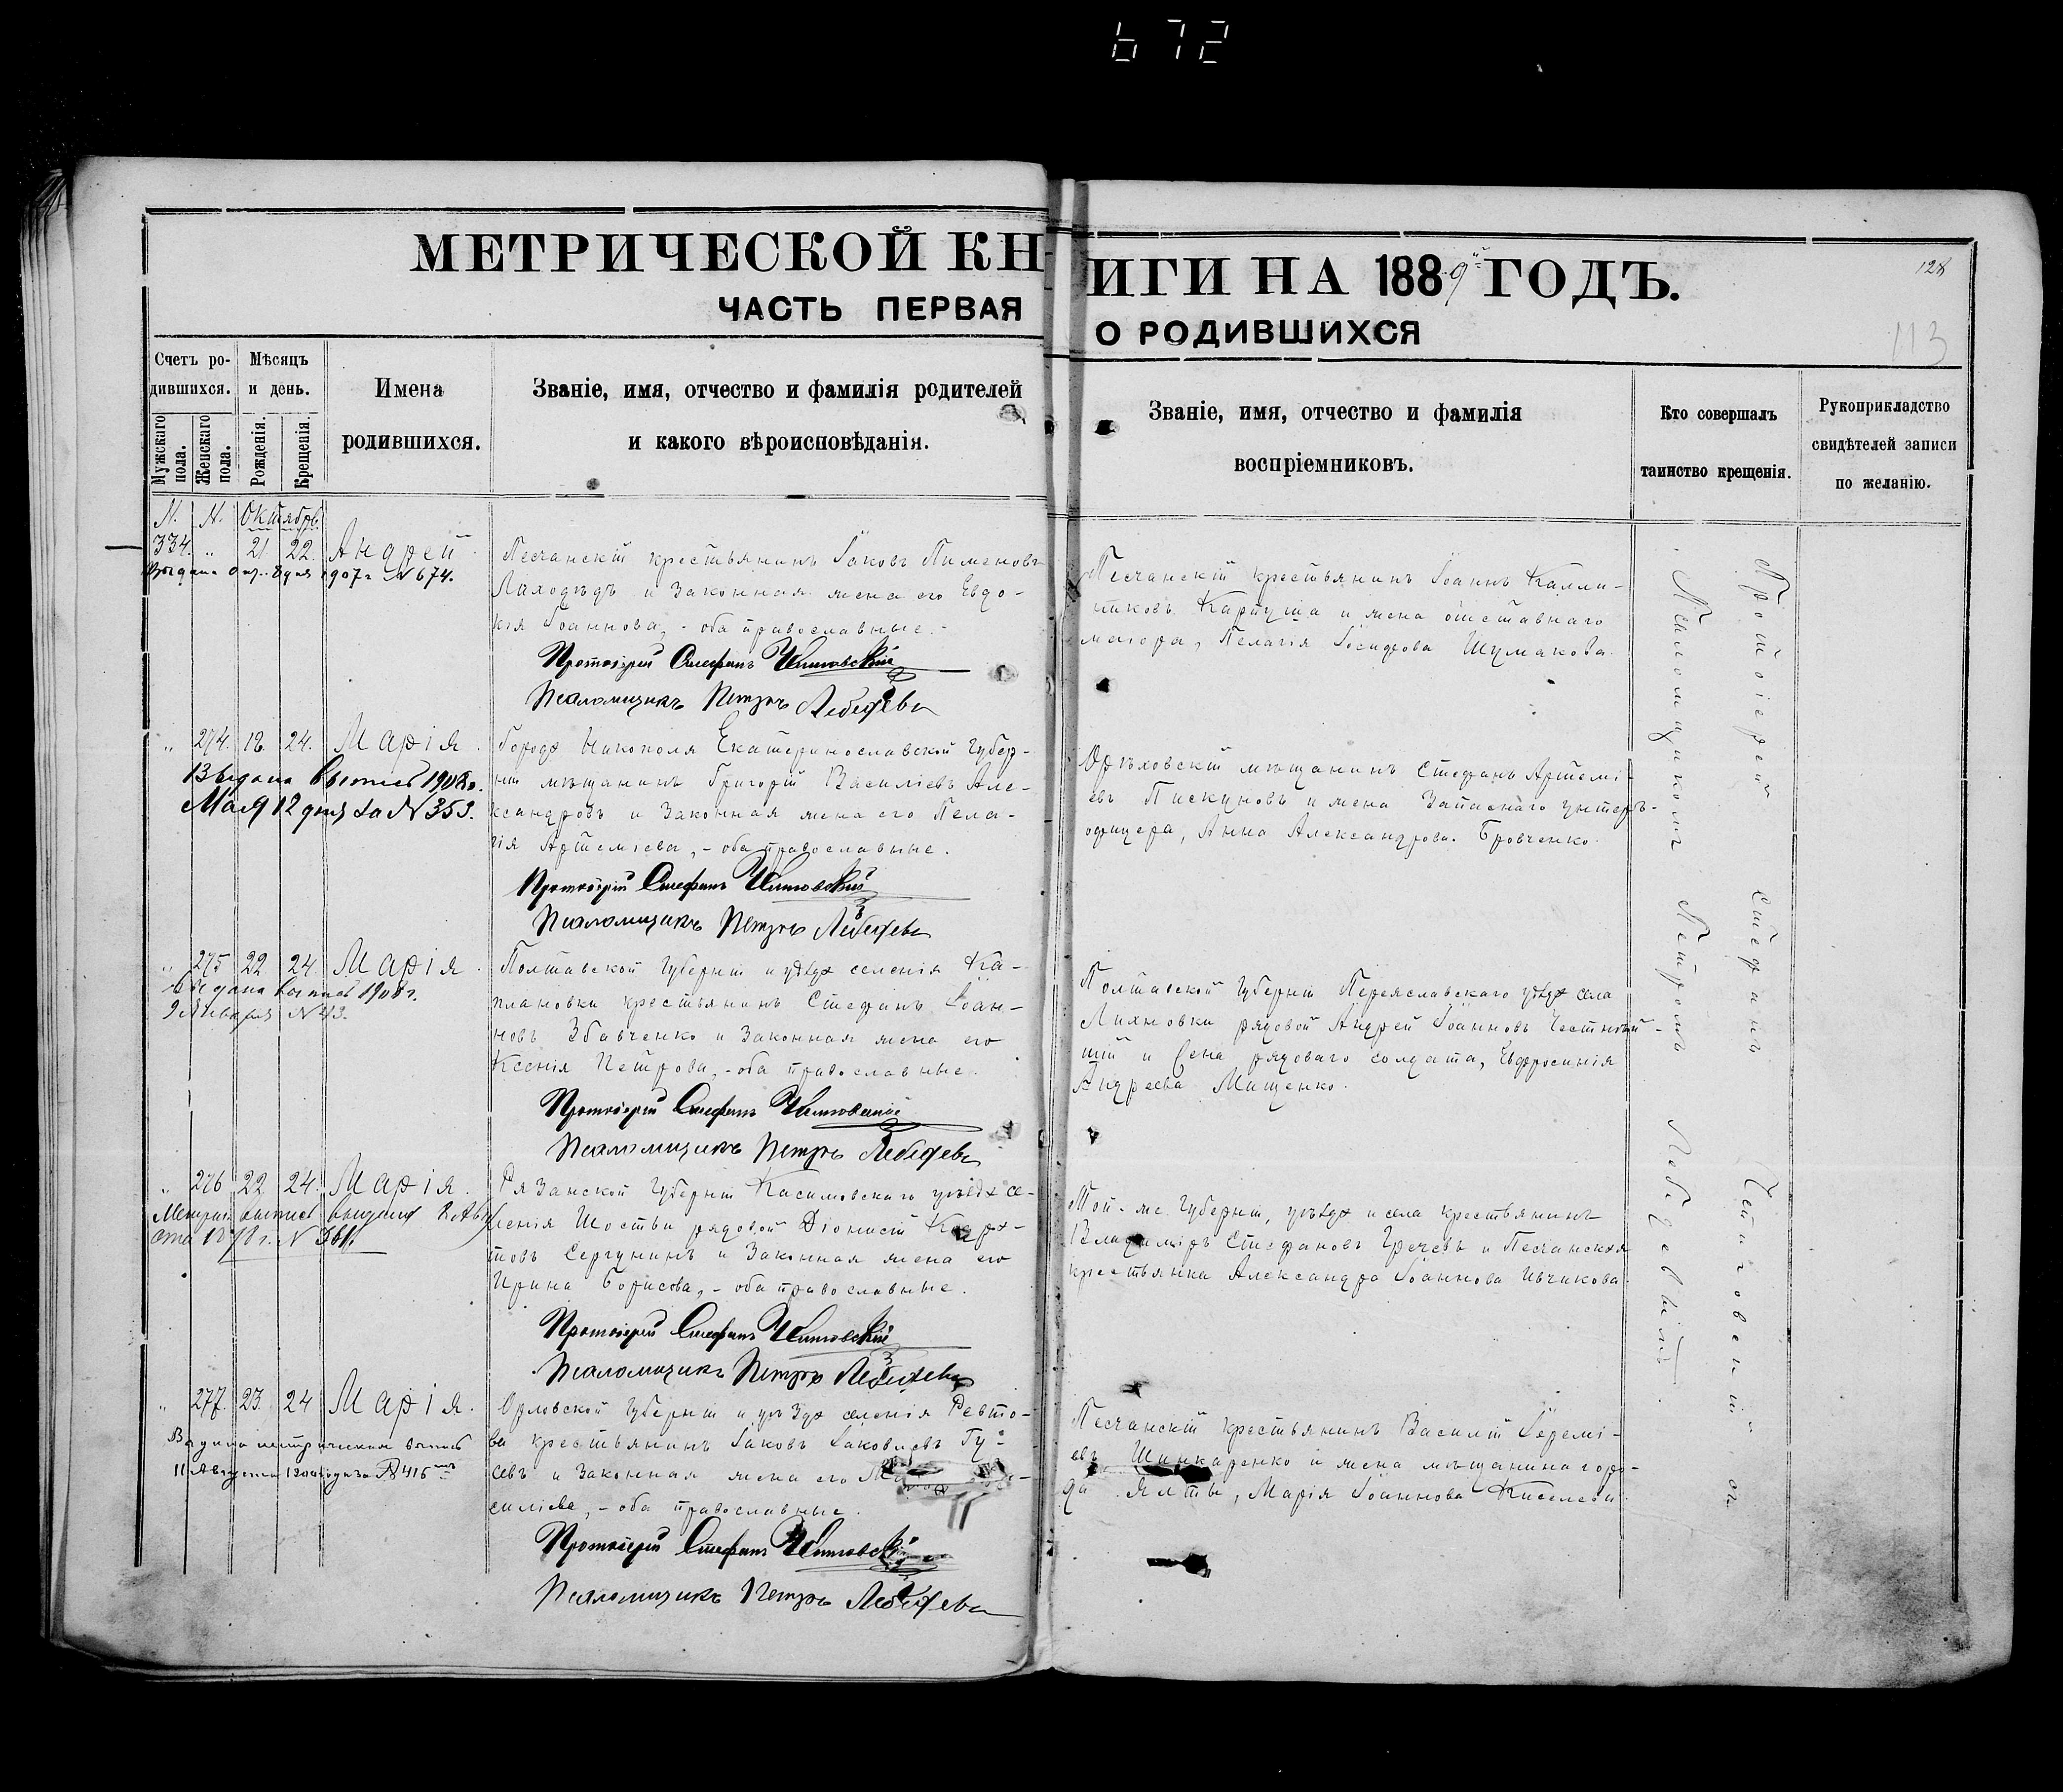 672
МЕТРИЧЕСКОЙ КНИГИ НА 1889й ГОДЪ.
128
ЧАСТЬ ПЕРВАЯ О РОДИВШИХСЯ
113
Счетъ родившихся.
Мужскаго пола.
Женскаго пола.
Мѣсяцъ и день.
Рожденія.
Крещенія.
Имена
родившихся.
Званіе, имя, отчество и фамилія родителей
и какого вѣроисповѣданія.
Званіе, имя, отчество и фамилія
воспріемниковъ.
Кто совершалъ
таинство крещенія.
Рукоприкладство
свидѣтелей записи
по желанію.
N. N. Октябрь.
334. " 21 22 Андрей
1907 г N 674.
Песчанскій крестьянинъ Іаковъ Пименовъ
и законная жена его Евдо-
кія Іоаннова, - оба православные.
Протоіерей Стефанъ
Псаломщикъ Петръ Лебедевъ
Песчанскій крестьянинъ Іоаннъ Калли-
никовъ Карпуша и жена отставнаго
маіора, Пелагія Іосифова Шумакова.
" 274. 18. 24. Марія.
Выдана выпись 1908 г.
Мая 12 дня за N 353.
Города Никополя Екатеринославской губер-
ніи мѣщанинъ Григорій Василіевъ Але-
ксандровъ и законная жена его Пела-
гія Артеміева, - оба православные.
Протоіерей Стефанъ
Псаломщикъ Петръ Лебедевъ
Орѣховскій мѣщанинъ Стефанъ Артемі-
евъ Пискуновъ и жена запаснаго унтеръ-
офицера, Анна Александрова Бровченко.
" 275 22 24. Марія.
Выдана выпись 1908 г.
9 Января N 43.
Полтавской губерніи и уѣзда селенія Ка-
плановки крестьянинъ Стефанъ Іоан-
новъ Збавченко и законная жена его
Ксенія Петрова, - оба православные.
Протоіерей Стефанъ
Псаломщикъ Петръ Лебедевъ
Полтавской губерніи Переяславскаго уѣзда села
рядовой Андрей Іоанновъ
и жена рядоваго солдата, Евфросинія
Андреева Мищенко.
" 276 22 24. Марія.
Метрич выпись выдана
N 361.
Рязанской губерніи Касимовскаго уѣзда се-
ленія Шостьи рядовой Діонисій Кодра-
товъ Сергунинъ и законная жена его
Ирина Борисова, - оба православные.
Протоіерей Стефанъ
Псаломщикъ Петръ Лебедевъ
Той-же губерніи, уѣзда и села крестьянинъ
Владиміръ Стефановъ Гречевъ и Песчанская
крестьянка Александра Іоаннова Ивчикова.
" 277. 23. 24 Марія.
Выдана метрическая выпись
11 Августа N 416
Орловской губерніи и уѣзда селенія Ревто-
ва крестьянинъ Іаковъ Іаковлевъ Гу-
севъ и законная жена его
силіева, - оба православные.
Протоіерей Стефанъ
Псаломщикъ Петръ Лебедевъ
Песчанскій крестьянинъ Василій Іеремі-
евъ Шинкаренко и жена мѣщанина горо-
да Ялты, Марія Іоаннова Киселева.
Протоіерей Стефанъ съ
Псаломщикомъ Петромъ Лебедевымъ.